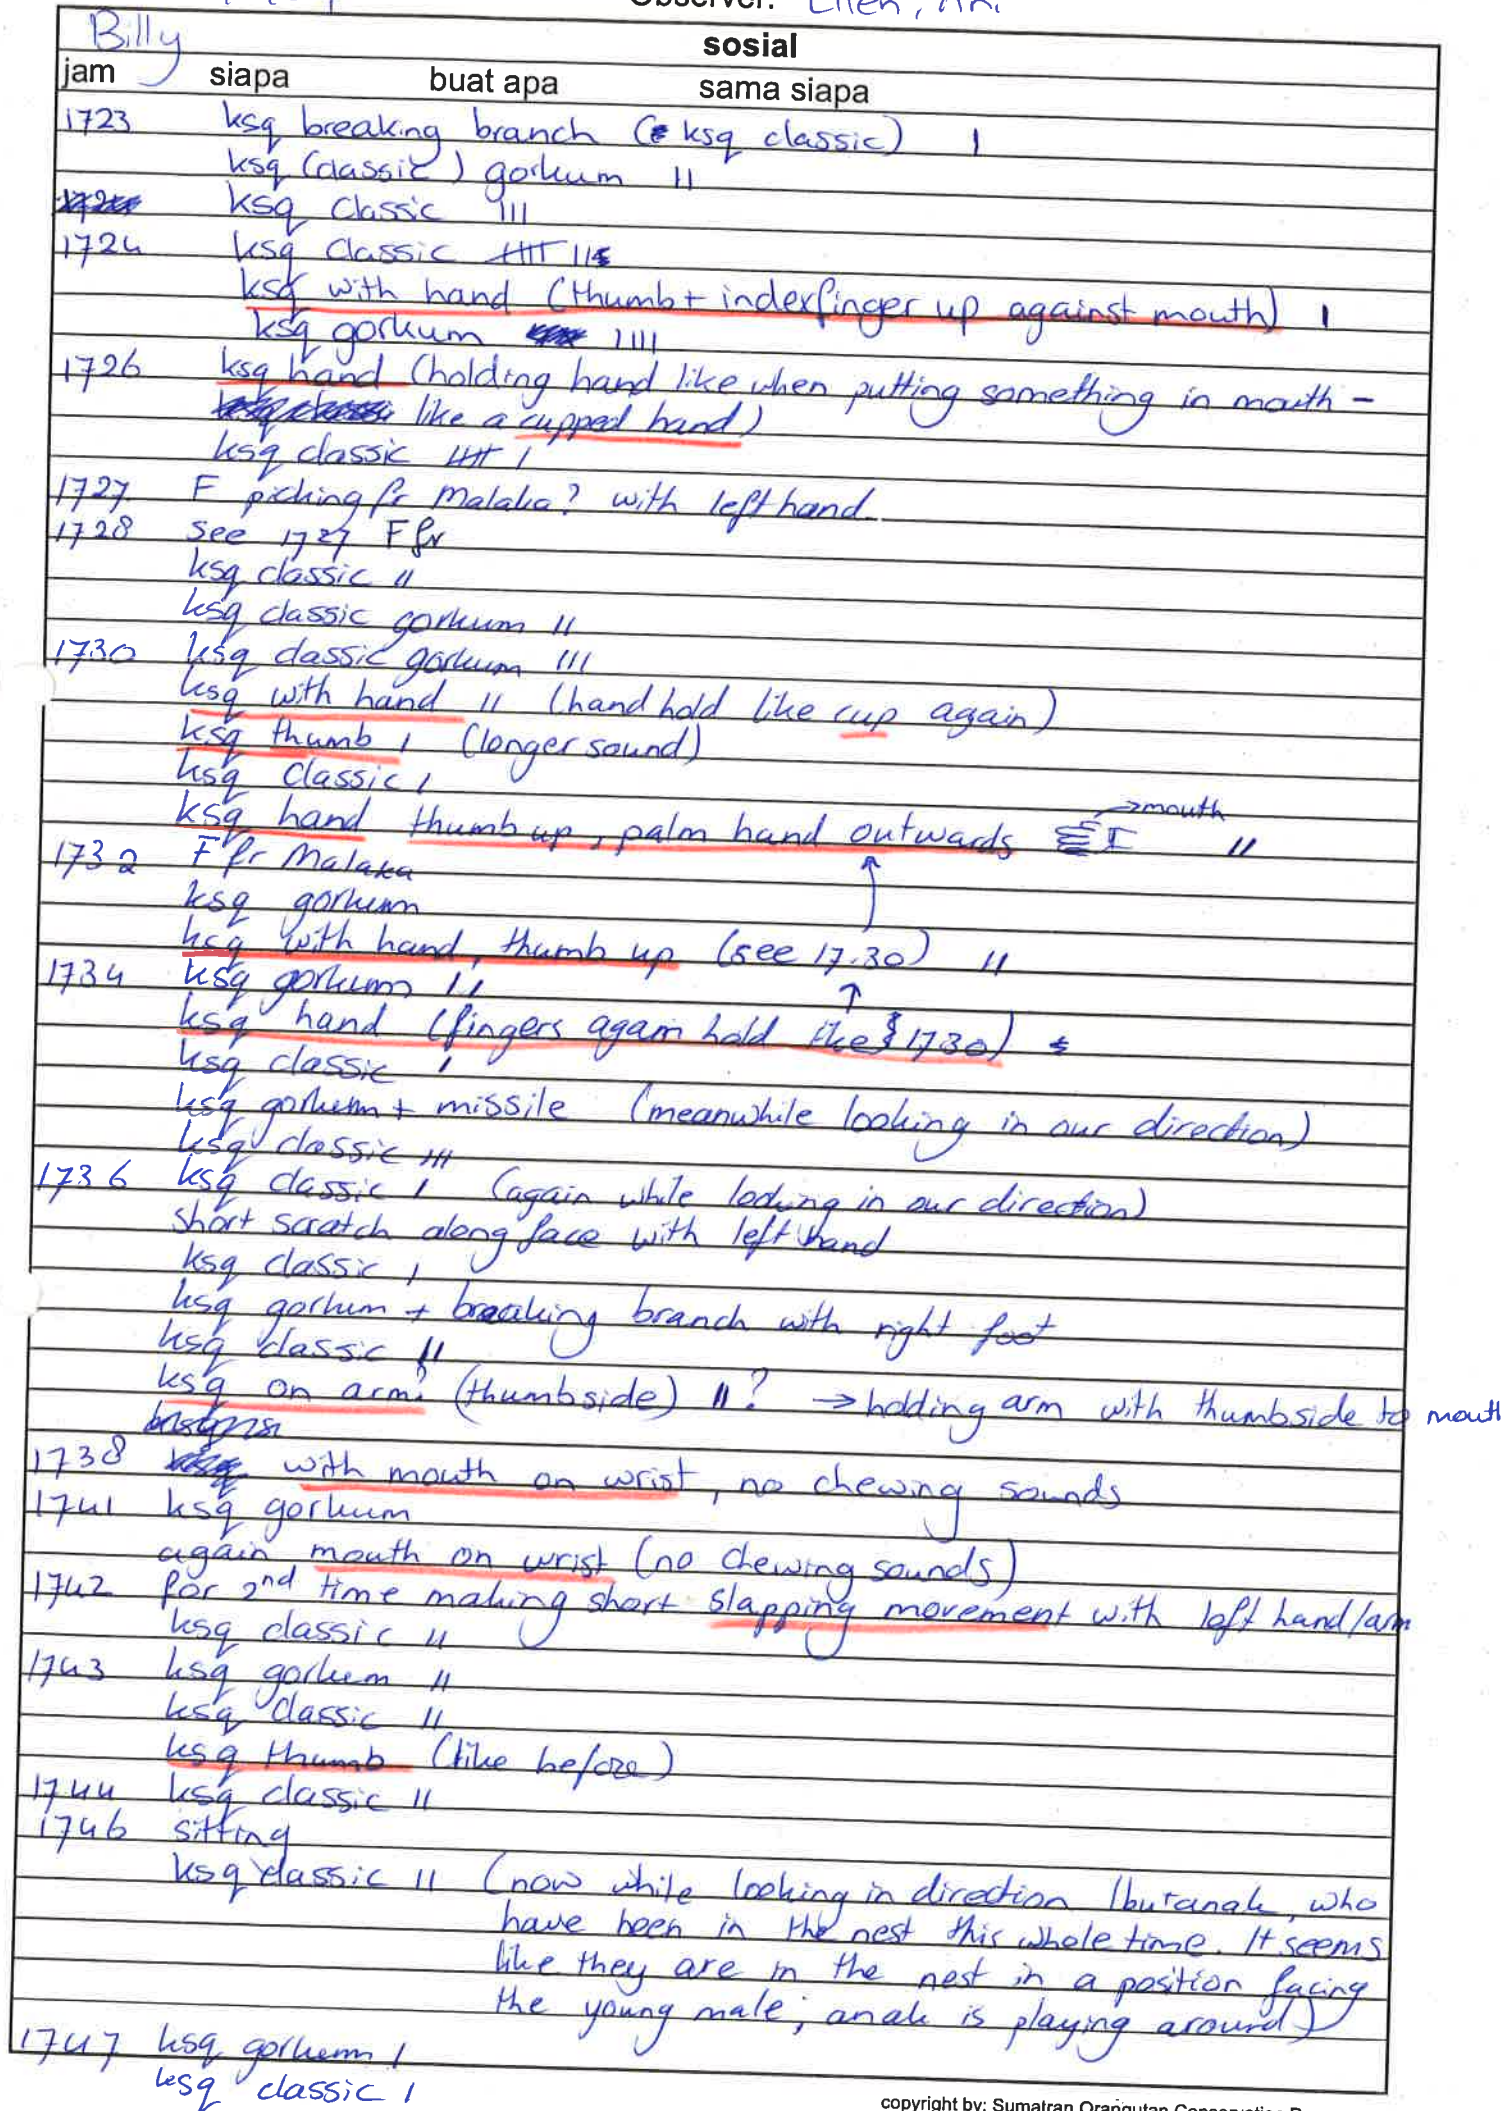 Observer: Ellen,
Billy
sosial
jam siapa buat apa sama siapa
1723 ksq breaking branch (ksq classic) I
ksq (classic) gorkum II
ksq classic III
1724 ksq classic IIII II
ksq with hand (thumb + indexfinger up against mouth) I
ksq gorkum IIII
1726 ksq hand (holding hand like when putting something in mouth -
like a cupped hand)
ksq classic IIII I
1727 F picking fr Malaka? with left hand
1728 see 1727 F fr
ksq classic II
ksq classic gorkum II
1730 ksq classic gorkum III
ksq with hand II (hand hold like cup again)
ksq thumb I (longer sound)
ksq classic I
→mouth
ksq hand thumb up, palm hand outwards II
1732 F fr Malaka
ksq gorkum
ksq with hand, thumb up (see 17.30) II
1734 ksq gorkum II
ksq hand (fingers again hold like 1730)
ksq classic I
ksq gorkum + missile (meanwhile looking in our direction)
ksq classic III
1736 ksq classic I (again while looking in our direction)
short scratch along face with left hand
ksq classic I
ksq gorkum + breaking branch with right foot
ksq classic II
ksq on arm? (thumbside) II? → holding arm with thumbside to mouth
1738 with mouth on wrist, no chewing sounds
1741 ksq gorkum
again mouth on wrist (no chewing sounds)
1742 for 2nd time making short slapping movement with left hand/arm
ksq classic II
1743 ksq gorkum II
ksq classic II
ksq thumb (like before)
1744 ksq classic II
1746 sitting
ksq classic II (now while looking in direction Ibu+anak, who
have been in the nest this whole time. It seems
like they are in the nest in a position facing
the young male; anak is playing around)
1747 ksq gorkum I
ksq classic I
copyright by: Sumatran Orangutan Conservation